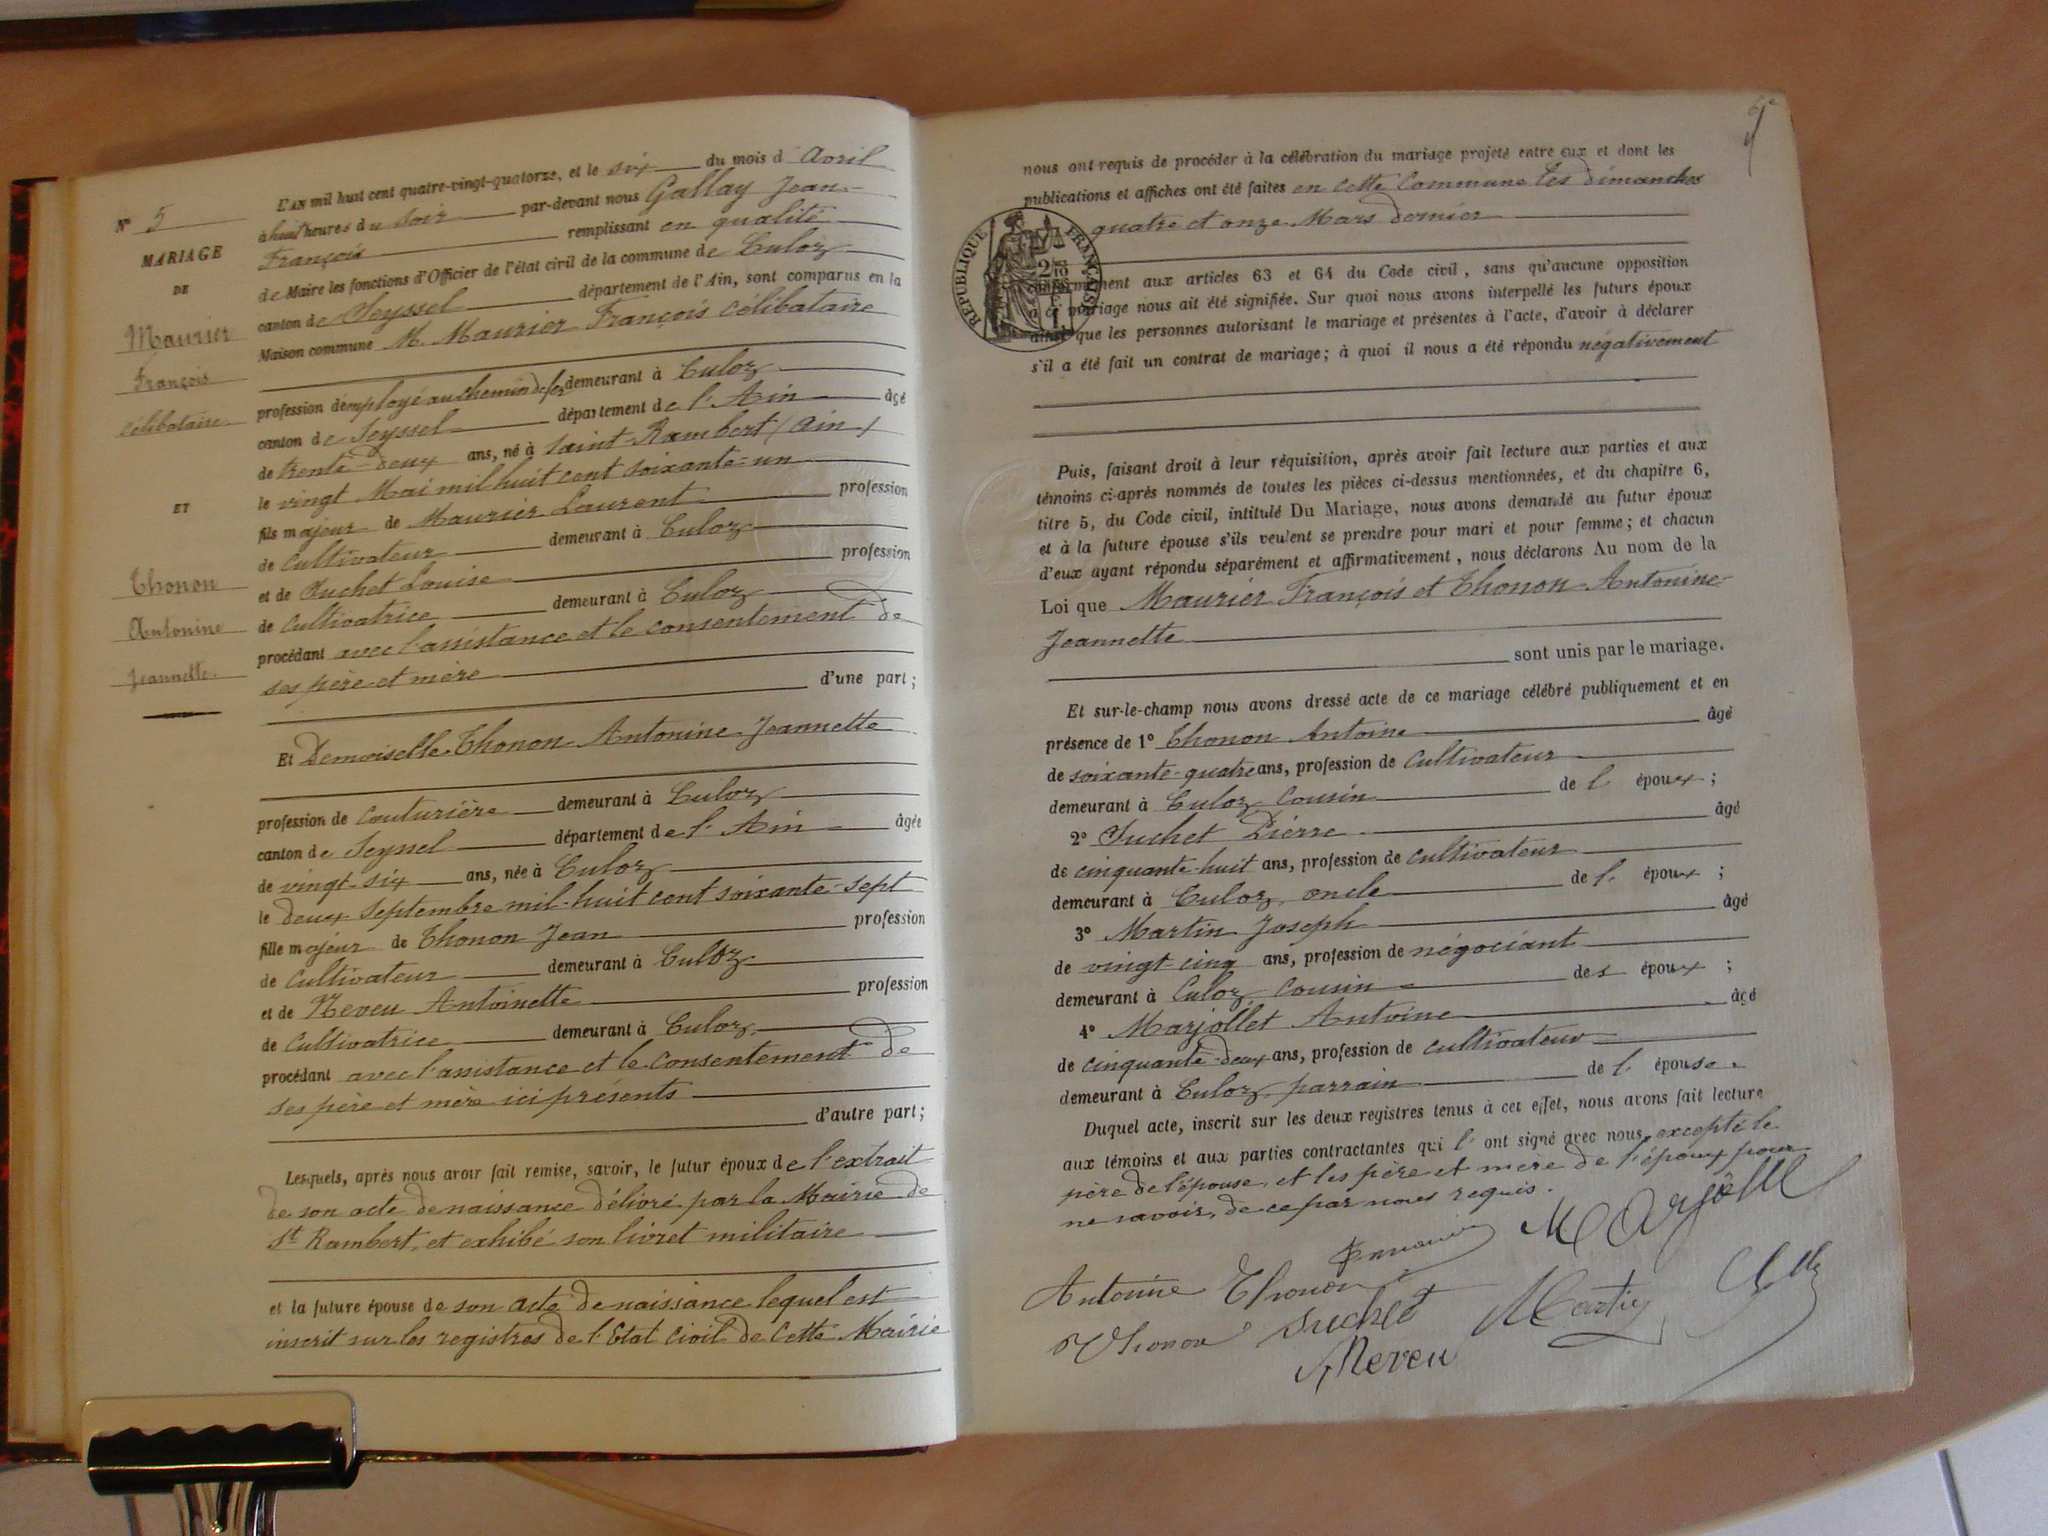 N° 5
MARIAGE
DE
Maurier
François
célibataire
ET
Thonon
Antonine
Jeannette
L'AN mil huit cent quatre-vingt-quatorze, et le six du mois d'Avril
à huit heures du soir par-devant nous Gallay Jean-
François remplissant en qualité
de Maire les fonctions d'Officier de l'état civil de la commune de Culoz
canton de Seyssel département de l'Ain, sont comparus en la
Maison commune M. Maurier François célibataire
profession d'employé au chemin de fer demeurant à Culoz
canton de Seyssel département de l'Ain âgé
de trente-deux ans, né à Saint-Rambert (Ain)
le vingt Mai mil huit cent soixante-un
fils majeur de Maurier Laurent profession
de cultivateur demeurant à Culoz
et de Suchet Louise profession
de cultivatrice demeurant à Culoz
procédant avec l'assistance et le consentement de
ses père et mère d'une part;
Et Demoiselle Thonon Antonine Jeannette
profession de couturière demeurant à Culoz
canton de Seyssel département de l'Ain âgée
de vingt-six ans, née à Culoz
le deux septembre mil-huit cent soixante-sept
fille majeur de Thonon Jean profession
de cultivateur demeurant à Culoz
et de Neveu Antoinette profession
de cultivatrice demeurant à Culoz
procédant avec l'assistance et le consentement de
ses père et mère ici présents d'autre part;
Lesquels, après nous avoir fait remise, savoir, le futur époux de l'extrait
de son acte de naissance délivré par la Mairie de
St Rambert, et exhibé son livret militaire
et la future épouse de son acte de naissance lequel est
inscrit sur les registres de l'Etat civil de cette Mairie
nous ont requis de procéder à la célébration du mariage projeté entre eux et dont les
publications et affiches ont été faites en cette commune les dimanches
quatre et onze Mars dernier
RÉPUBLIQUE FRANÇAISE
conformément aux articles 63 et 64 du Code civil, sans qu'aucune opposition
à ce mariage nous ait été signifiée. Sur quoi nous avons interpellé les futurs époux
ainsi que les personnes autorisant le mariage et présentes à l'acte, d'avoir à déclarer
s'il a été fait un contrat de mariage; à quoi il nous a été répondu négativement
Puis, faisant droit à leur réquisition, après avoir fait lecture aux parties et aux
témoins ci-après nommés de toutes les pièces ci-dessus mentionnées, et du chapitre 6,
titre 5, du Code civil, intitulé Du Mariage, nous avons demandé au futur époux
et à la future épouse s'ils veulent se prendre pour mari et pour femme; et chacun
d'eux ayant répondu séparément et affirmativement, nous déclarons Au nom de la
Loi que Maurier François et Thonon Antonine
Jeannette
sont unis par le mariage.
Et sur-le-champ nous avons dressé acte de ce mariage célébré publiquement et en
présence de 1° Thonon Antoine âgé
de soixante-quatre ans, profession de cultivateur
demeurant à Culoz cousin de l'époux;
2° Suchet Pierre âgé
de cinquante-huit ans, profession de cultivateur
demeurant à Culoz, oncle de l'époux;
3° Martin Joseph âgé
de vingt cinq ans, profession de négociant
demeurant à Culoz cousin des époux;
4° Marjollet Antoine âgé
de cinquante-deux ans, profession de cultivateur
demeurant à Culoz, parrain de l'épouse.
Duquel acte, inscrit sur les deux registres tenus à cet effet, nous avons fait lecture
aux témoins et aux parties contractantes qui l'ont signé avec nous, excepté le
père de l'épouse, et les père et mère de l'époux pour
ne savoir, de ce par nous requis.
Antonine Thonon
Thonon Suchet Martin
Neveu